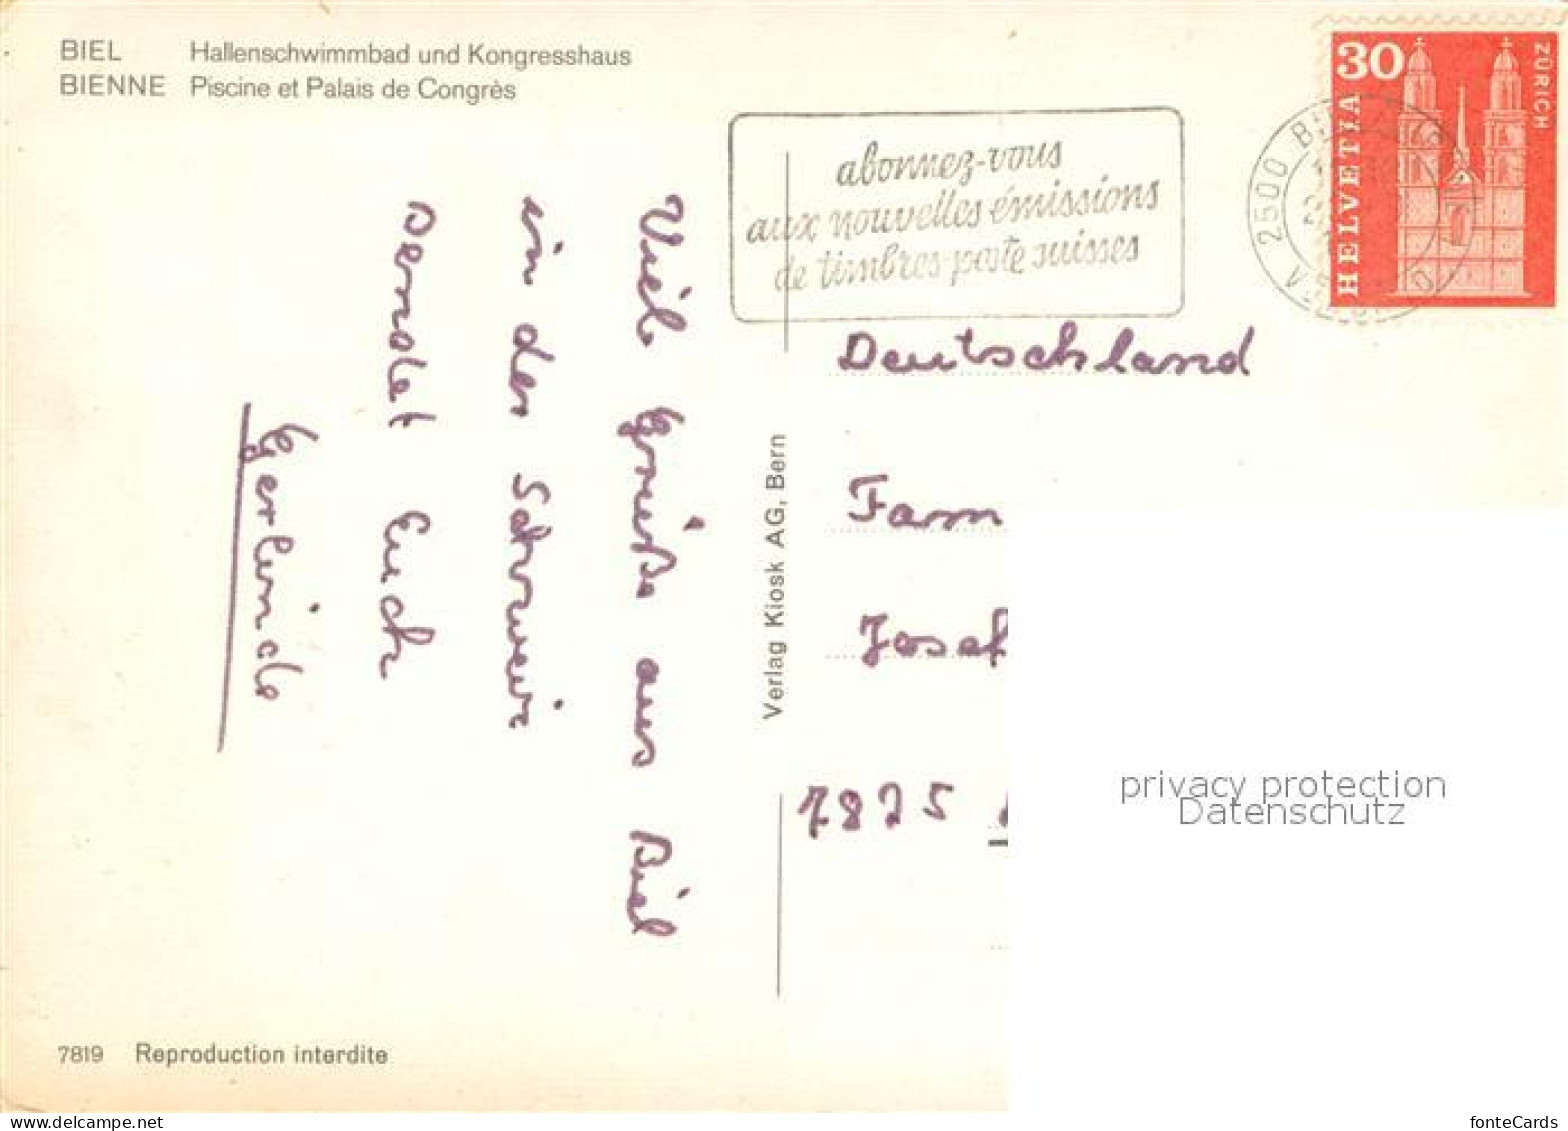 BIEL Hallenschwimmbad und Kongresshaus
BIENNE Piscine et Palais de Congrès
30
ZÜRICH
HELVETIA
2500
abonnez-vous
aux nouvelles émissions
de timbres-poste suisses
Viele Grüße aus Biel
in der Schweiz
sendet Euch
Gerlinde
Verlag Kiosk AG, Bern
Deutschland
Fam
Josef
7825
privacy protection
Datenschutz
7819 Reproduction interdite
fonteCards